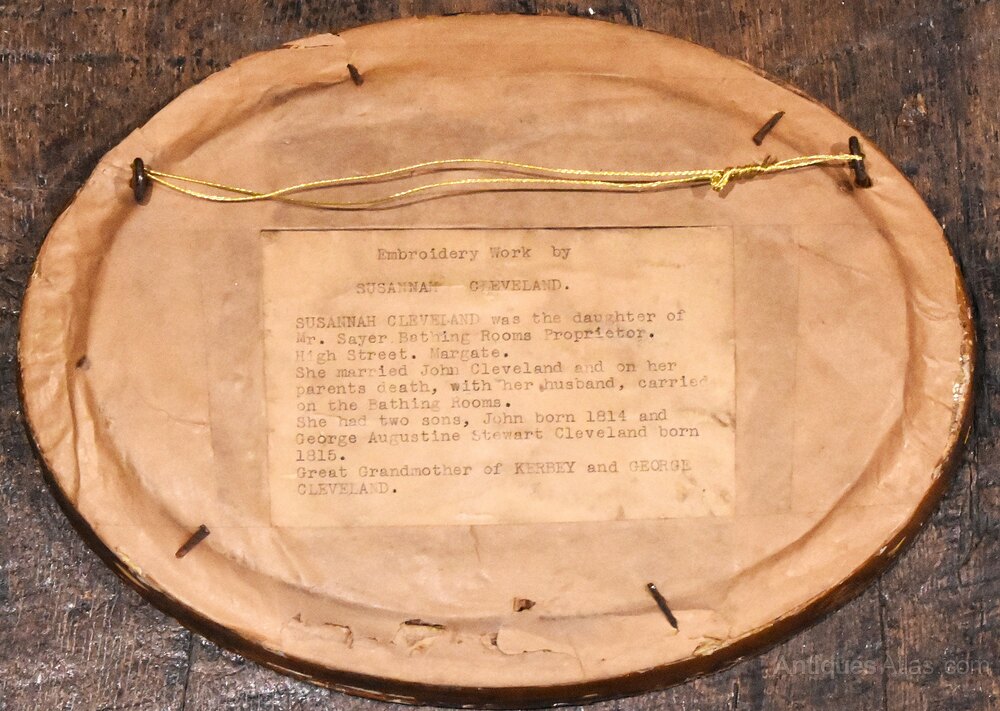 Embroidery Work by
SUSANNAH CLEVELAND.
SUSANNAH CLEVELAND was the daughter of
Mr. Sayer Bathing Rooms Proprietor.
High Street. Margate.
She married John Cleveland and on her
parents death, with her husband, carried
on the Bathing Rooms.
She had two sons, John born 1814 and
George Augustine Stewart Cleveland born
1815.
Great Grandmother of KERBEY and GEORGE
CLEVELAND.
Antiques Atlas.com